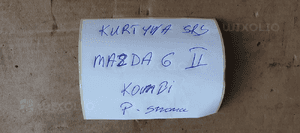 KURTYNA SRS
MAZDA 6 II
KOMBI
P-strona